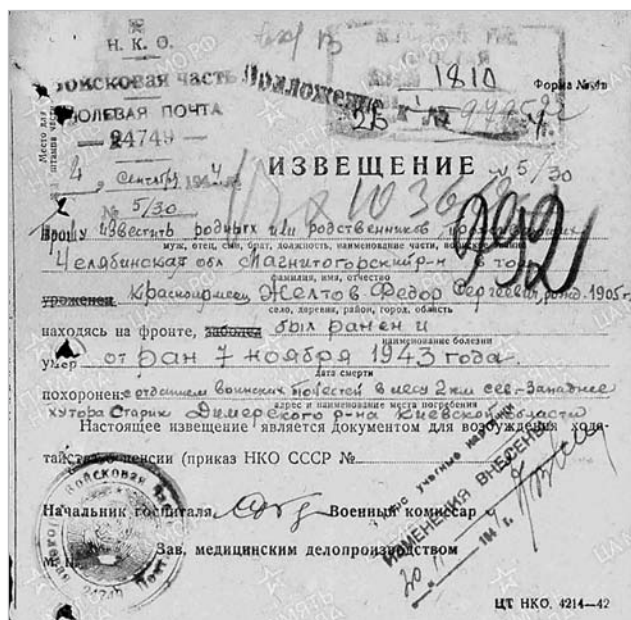 Н. К. О.
Войсковая часть Приложение
ПОЛЕВАЯ ПОЧТА
— 24749 —
Место для штампа части
1810
Форма №
к №
2 сентября 1944 г.
№ 5/30
ИЗВЕЩЕНИЕ № 5/30
992
Прошу известить родных или родственников проживающих
муж, отец, сын, брат, должность, наименование части,
Челябинская обл Магнитогорский р-н
фамилия, имя, отчество
уроженец Красноармеец Желтов Федор Сергеевич, рожд. 1905 г.
село, деревня, район, город, область
находясь на фронте, заболел был ранен и
наименование болезни
умер от ран 7 ноября 1943 года.
дата смерти
похоронен с отданием воинских почестей в лесу 2 км сев.-западнее
адрес и наименование места погребения
хутора Старик Димерского р-на Киевской области
Настоящее извещение является документом для возбуждения хода-
тайства о пенсии (приказ НКО СССР №
учетные
ИЗМЕНЕНИЯ ВНЕСЕНЫ
20 II 194 г.
Войсковая
24749
Начальник госпиталя, Военный комиссар
Зав. медицинским делопроизводством
М. П.
ЦТ НКО. 4214—42